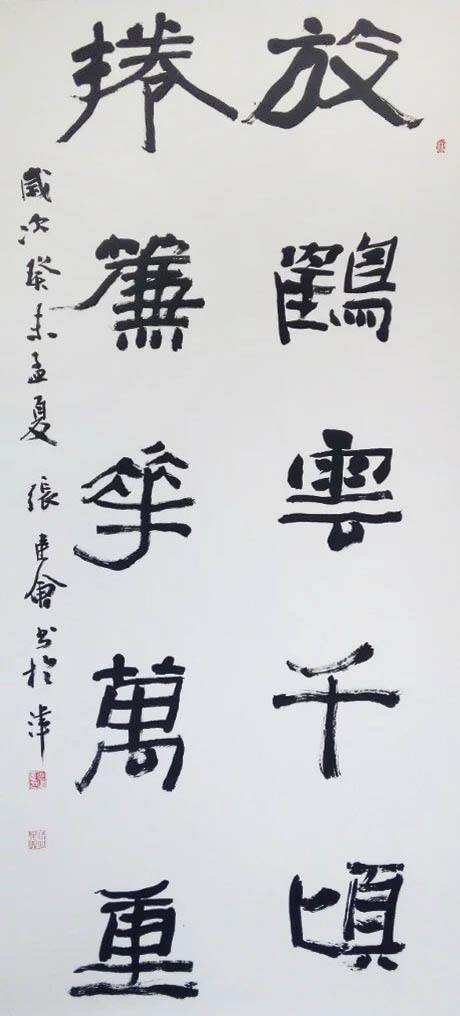 放鶴雲千頃
捲簾華萬重
歲次癸未孟夏 張建會書於津